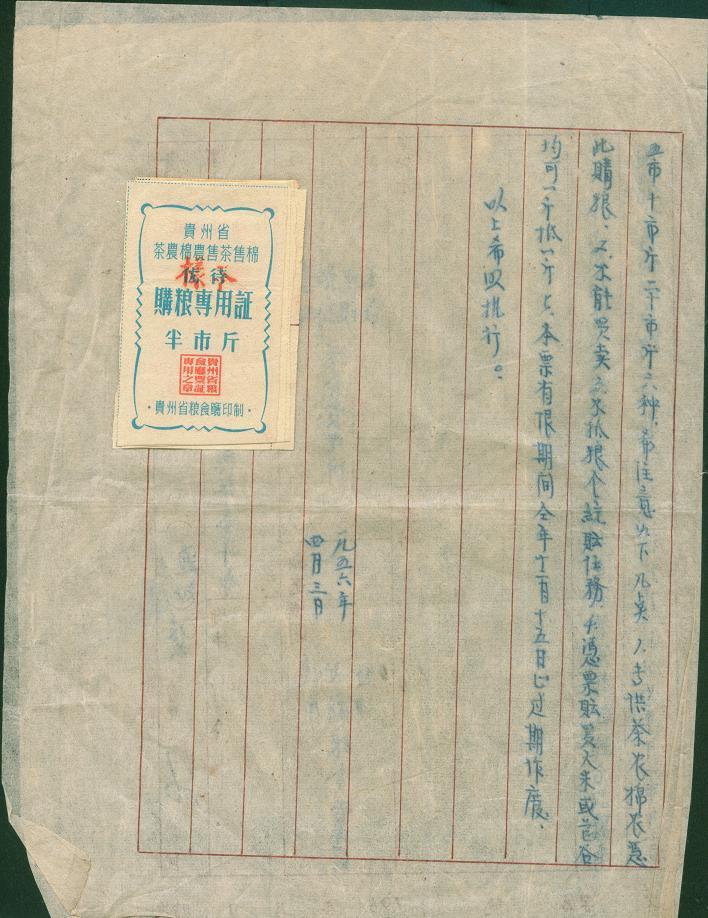 五市斤十市斤二十市斤六种，希注意以下几点：1.专供茶农棉农憑
此購粮，2.不能买卖3.不抵粮食統販任務，4.憑票販買大米或苞谷
均可一斤抵一斤5.本票有限期间全年十二月十五日止过期作废。
以上希即执行。
一九五六年
四月三日
貴州省
茶農棉農售茶售棉
優待
樣本
購粮專用証
半市斤
貴州省粮
食廳票証
專用之章
·貴州省粮食廳印制·